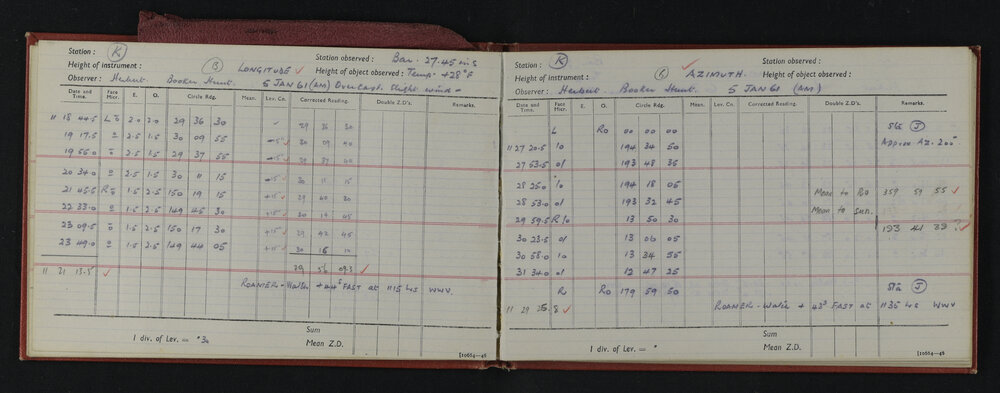 Station : K
Height of instrument :
B LONGITUDE ✓
Station observed : Bar. 27.45 ins
Height of object observed : Temp. +28°F
Observer : Herbert. Booker Hunt. 5 JAN 61 (AM) Overcast. Slight wind -
Date and Time. Face Micr. E. O. Circle Rdg. Mean. Lev. Cn. Corrected Reading. Double Z.D's. Remarks.
11 18 44.5 L 2.0 2.0 29 36 30 29 36 30
19 17.5 2.5 1.5 30 09 55 -15" ✓ 30 09 40
19 55.0 2.5 1.5 29 37 55 -15" ✓ 29 37 40
20 34.0 2.5 1.5 30 11 15 -15 ✓ 30 11 15
21 45.5 R 1.5 2.5 150 19 15 +15 ✓ 29 40 30
22 33.0 1.5 2.5 149 45 30 +15 ✓ 30 14 45
23 09.5 1.5 2.5 150 17 30 +15" ✓ 29 42 45
23 49.0 1.5 2.5 149 44 05 +15" ✓ 30 16 10
11 21 13.5 ✓ 29 56 09.3 ✓
ROAMER - Walter + 44s FAST at 1115 hs WWV.
Sum
1 div. of Lev. = "30 Mean Z.D.
[10664—46
Station : K
Height of instrument :
✓ AZIMUTH.
Station observed :
Height of object observed :
Observer : Herbert Booker Hunt 5 JAN 61 (AM)
Date and Time. Face Micr. E. O. Circle Rdg. Mean. Lev. Cn. Corrected Reading. Double Z.D's. Remarks.
L RO 00 00 00 Stn J
11 27 20.5 194 34 50 Approx Az. 200°
27 53.5 193 48 35
28 25.0 194 18 05 Mean to RO 359 59 55 ✓
28 53.0 193 32 45 Mean to sun.
29 59.5 R 13 50 30 193 41 39 ? ✓
30 23.5 13 06 05
30 58.0 13 34 55
31 34.0 12 47 25
R RO 179 59 50 Stn J
11 29 25.8 ✓ ROAMER - Walter + 43s FAST at 1135 hs WWV
Sum
1 div. of Lev. = " Mean Z.D.
[10664—46